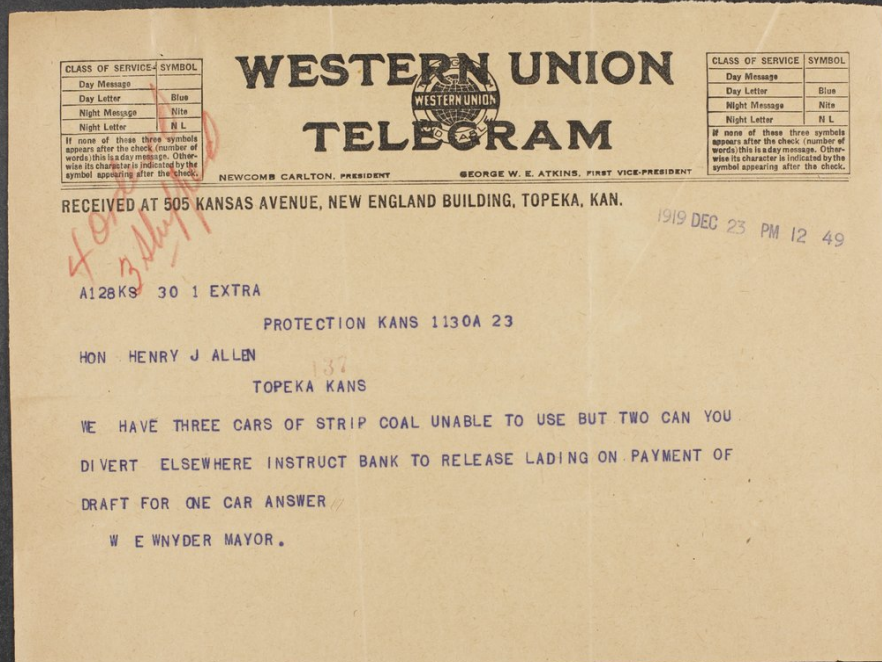 CLASS OF SERVICE SYMBOL
Day Message
Day Letter Blue
Night Message Nite
Night Letter N L
If none of these three symbols
appears after the check (number of
words) this is a day message. Other-
wise its character is indicated by the
symbol appearing after the check.
WESTERN UNION
WESTERN UNION
TELEGRAM
NEWCOMB CARLTON, PRESIDENT GEORGE W. E. ATKINS, FIRST VICE-PRESIDENT
CLASS OF SERVICE SYMBOL
Day Message
Day Letter Blue
Night Message Nite
Night Letter N L
If none of these three symbols
appears after the check (number of
words) this is a day message. Other-
wise its character is indicated by the
symbol appearing after the check.
RECEIVED AT 505 KANSAS AVENUE, NEW ENGLAND BUILDING, TOPEKA, KAN.
1919 DEC 23 PM 12 49
4 ordered
3 shipped
A128KS 30 1 EXTRA
PROTECTION KANS 1130A 23
HON HENRY J ALLEN
137
TOPEKA KANS
WE HAVE THREE CARS OF STRIP COAL UNABLE TO USE BUT TWO CAN YOU
DIVERT ELSEWHERE INSTRUCT BANK TO RELEASE LADING ON PAYMENT OF
DRAFT FOR ONE CAR ANSWER
W E WNYDER MAYOR.